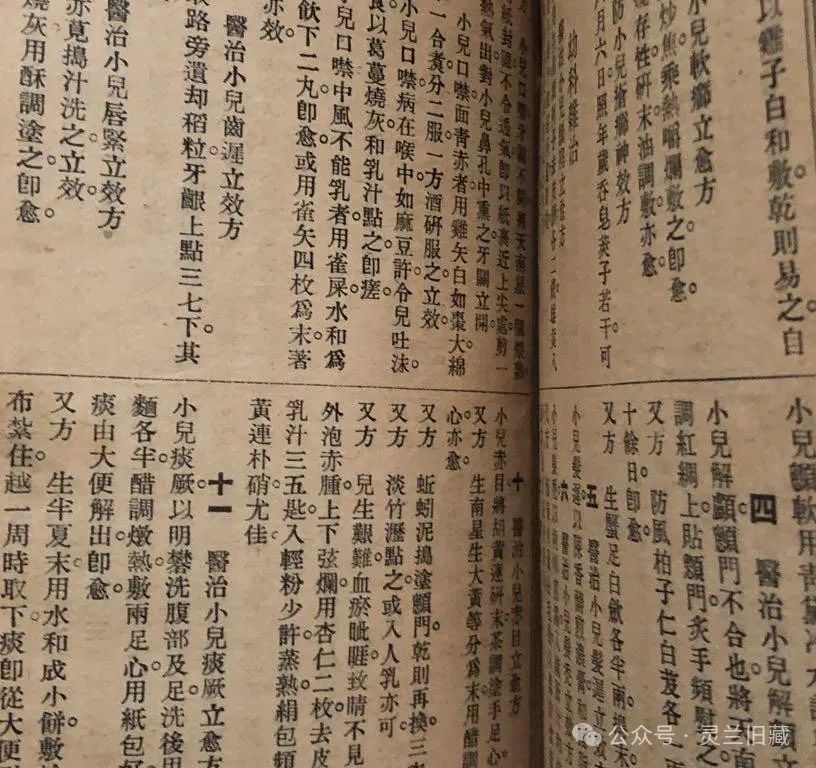 以雞子白和敷乾則易之自
小兒軟癤立愈方
炒焦乘熱嚼爛敷之卽愈
存性硏末油調敷亦愈
防小兒癤神效方
月六日照年歲吞皂莢子若干可
幼科雜治
小兒顖軟用青黛
四　醫治小兒解
小兒解顱顖門不合也將
調紅綢上貼顖門炙手頻慰之
又方　防風柏子仁白芨各一
十餘日卽愈
又方　生蟹足白斂各半兩搗
五　醫治小兒髮遲立
小兒髮遲以陳香薷煎濃
六　醫治小兒髮
方　小兒口噤牙關不開用天南星一個
紙封固不令透氣卽以紙裹近上尖處剪一
熱氣出對小兒鼻孔中熏之牙關立開
小兒口噤面青赤者用雞矢白如棗大綿
一合煑分二服一方酒硏服之立效
小兒口噤病在喉中如麻豆許令兒吐沫
食以葛蔓燒灰和乳汁點之卽瘥
兒口噤中風不能乳者用雀屎水和爲
飲下二丸卽愈或用雀矢四枚爲末著
亦效
醫治小兒齒遲立效方
路旁遺却稻粒牙齦上點三七下其
醫治小兒唇緊立效方
赤莧搗汁洗之立效
燒灰用酥調塗之卽愈
十　醫治小兒赤目立愈方
小兒赤目將胡黃連硏末茶調塗手足心
又方　生南星生大黃等分爲末用醋調
心亦愈
又方　蚯蚓泥搗塗顖門乾則再換三
又方　淡竹瀝點之或入人乳亦可
兒生艱難血瘀眦睚致睛不見
外泡赤腫上下弦爛用杏仁二枚去皮
乳汁三五匙入輕粉少許蒸熟絹包頻
黃連朴硝尤佳
十一　醫治小兒痰厥立愈方
小兒痰厥以明礬洗腹部及足洗後用
麵各半醋調燉熱敷兩足心用紙包
痰由大便解出卽愈
又方　生半夏末用水和成小餅敷
布紮住越一周時取下痰卽從大便
公众号·灵兰旧藏